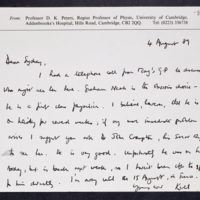 From: Professor D. K. Peters, Regius Professor of Physic, University of Cambridge,
Addenbrooke's Hospital, Hills Road, Cambridge, CB2 2QQ. Tel (0223) 336738
4 August 89
Dear Sydney,
I had a telephone call from Tony's GP he
who might see him here. Graham Neale is the obvious choice -
he is a first class physician. I believe, however, that he is
on holiday for several weeks; if any more immediate problem
arises I suggest you ask Dr John Compston, his Senior
to see him. He is very good. Unfortunately he was on
today, but is back next week, so I haven't been able to
to him directly. I'm away until the 15 August,
Yours ever Keith